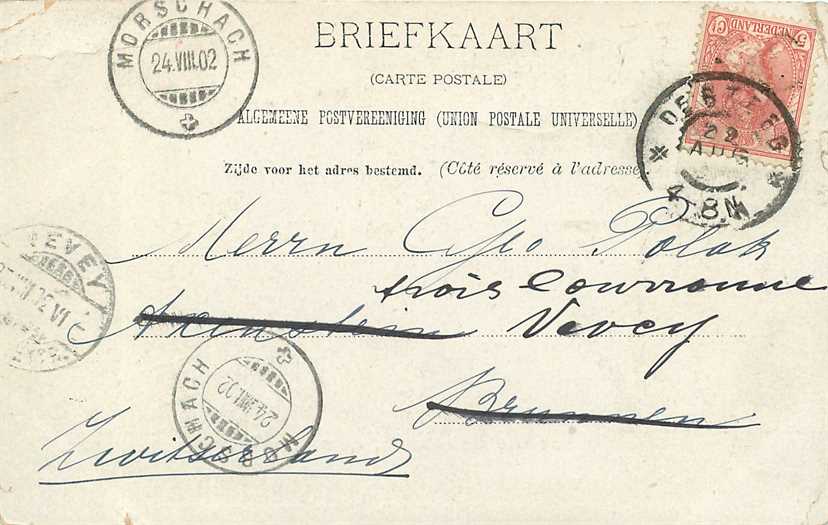 MORSCHACH
24.VIII.02
BRIEFKAART
(CARTE POSTALE)
ALGEMEENE POSTVEREENIGING (UNION POSTALE UNIVERSELLE)
Zijde voor het adres bestemd. (Côté réservé à l'adresse
NEDERLAND
5 Ct
DE STEEG
22
AUG
4-8N
Herrn Geo Polak
trois Courronne
Axenstein Vevey
Brunnen
Zwitserland
VEVEY
MORSCHACH
24.VIII.02